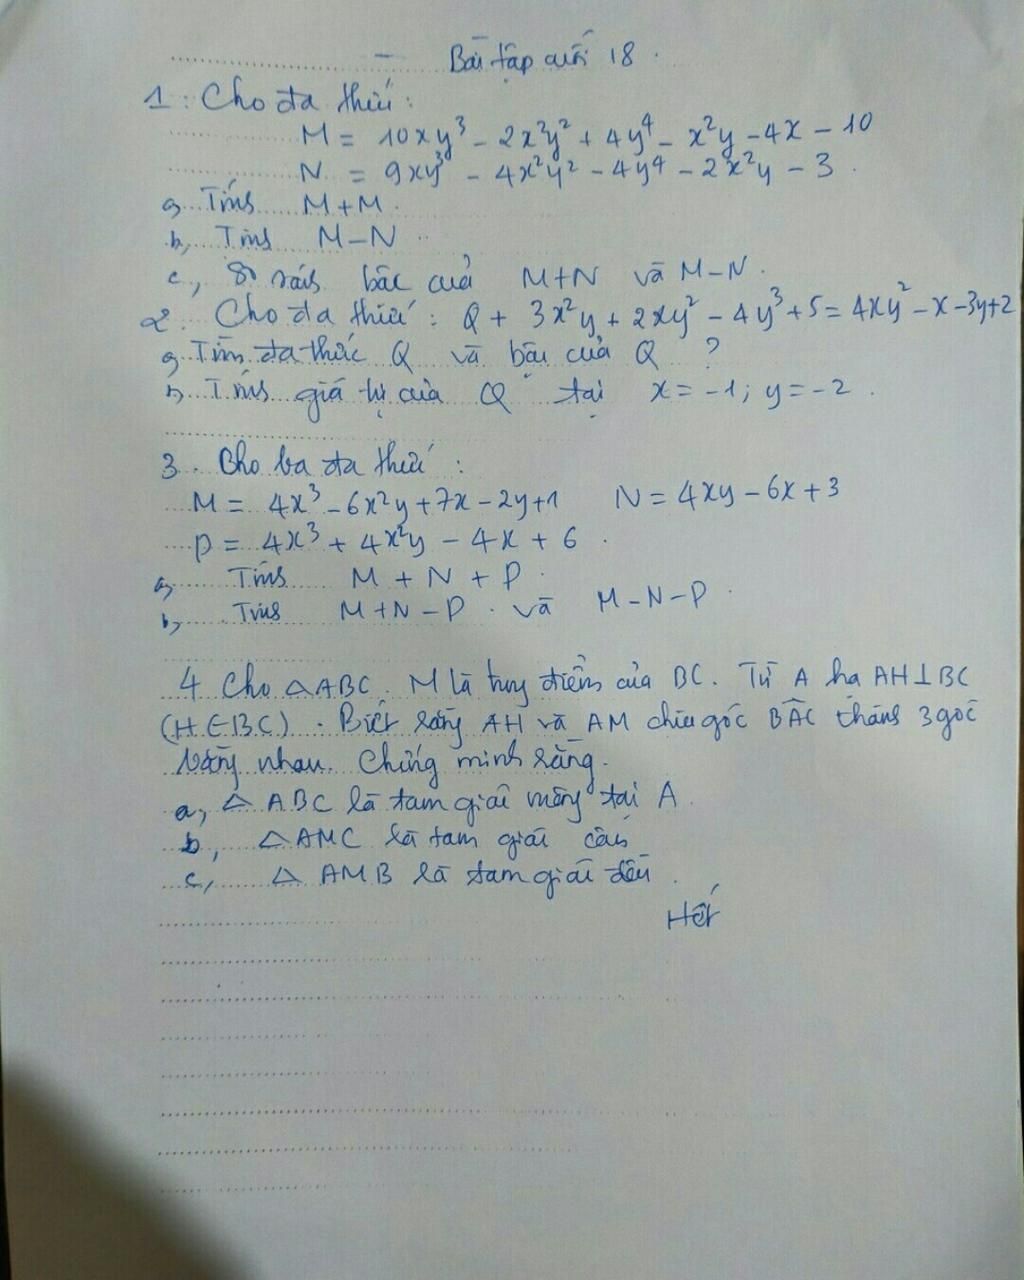 Bài tập cuối 18.
1. Cho đa thức:
M = 10xy³ - 2x²y² + 4y⁴ - x²y - 4x - 10
N = 9xy³ - 4x²y² - 4y⁴ - 2x²y - 3.
a, Tính M+M.
b, Tính M-N
c, So sánh bậc của M+N và M-N.
2. Cho đa thức: Q + 3x²y + 2xy² - 4y³ + 5 = 4xy² - x - 3y + 2
a, Tìm đa thức Q và bậc của Q ?
b, Tính giá trị của Q tại x = -1; y = -2.
3. Cho ba đa thức:
M = 4x³ - 6x²y + 7x - 2y + 1 N = 4xy - 6x + 3
P = 4x³ + 4x²y - 4x + 6.
a, Tính M + N + P.
b, Tính M + N - P. và M - N - P.
4 Cho △ABC. M là trung điểm của BC. Từ A hạ AH ⊥ BC
(H ∈ BC). Biết rằng AH và AM chia góc BÂC thành 3 góc
bằng nhau. Chứng minh rằng.
a, △ ABC là tam giác vuông tại A.
b, △ AMC là tam giác cân
c, △ AMB là tam giác đều.
Hết